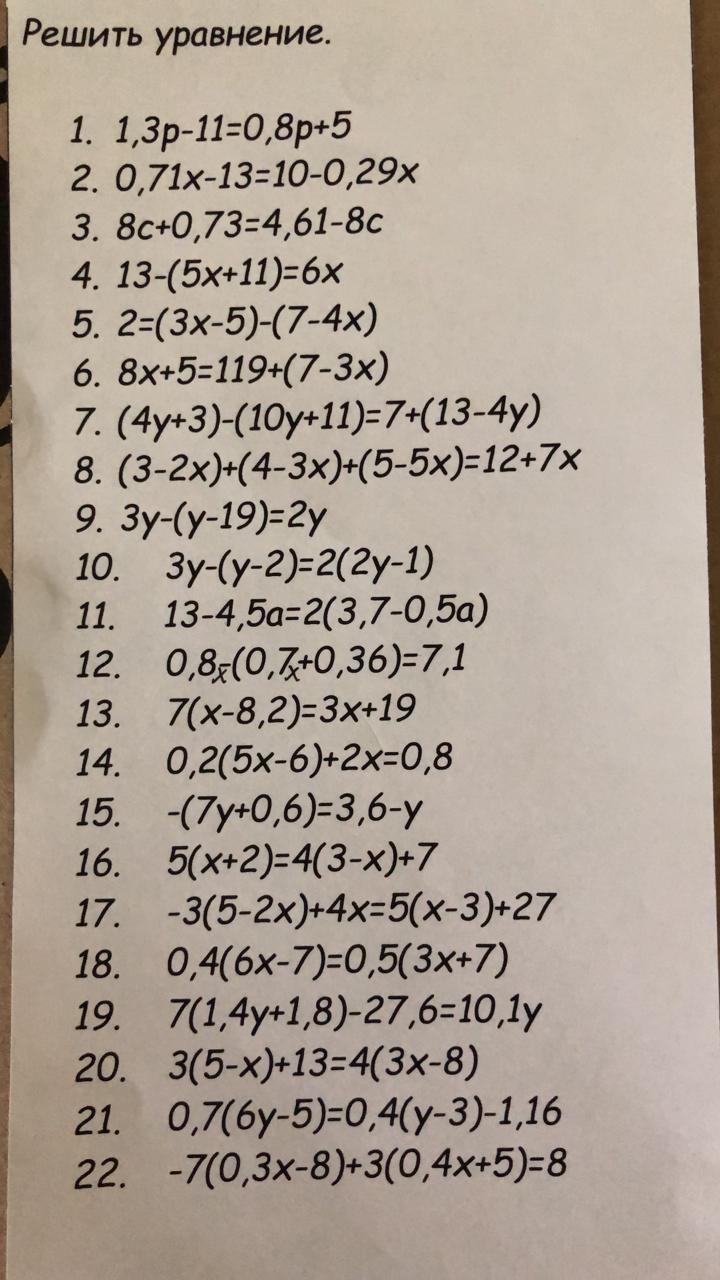 Решить уравнение.
1. 1,3p-11=0,8p+5
2. 0,71x-13=10-0,29x
3. 8c+0,73=4,61-8c
4. 13-(5x+11)=6x
5. 2=(3x-5)-(7-4x)
6. 8x+5=119+(7-3x)
7. (4y+3)-(10y+11)=7+(13-4y)
8. (3-2x)+(4-3x)+(5-5x)=12+7x
9. 3y-(y-19)=2y
10. 3y-(y-2)=2(2y-1)
11. 13-4,5a=2(3,7-0,5a)
12. 0,8x-(0,7x+0,36)=7,1
13. 7(x-8,2)=3x+19
14. 0,2(5x-6)+2x=0,8
15. -(7y+0,6)=3,6-y
16. 5(x+2)=4(3-x)+7
17. -3(5-2x)+4x=5(x-3)+27
18. 0,4(6x-7)=0,5(3x+7)
19. 7(1,4y+1,8)-27,6=10,1y
20. 3(5-x)+13=4(3x-8)
21. 0,7(6y-5)=0,4(y-3)-1,16
22. -7(0,3x-8)+3(0,4x+5)=8